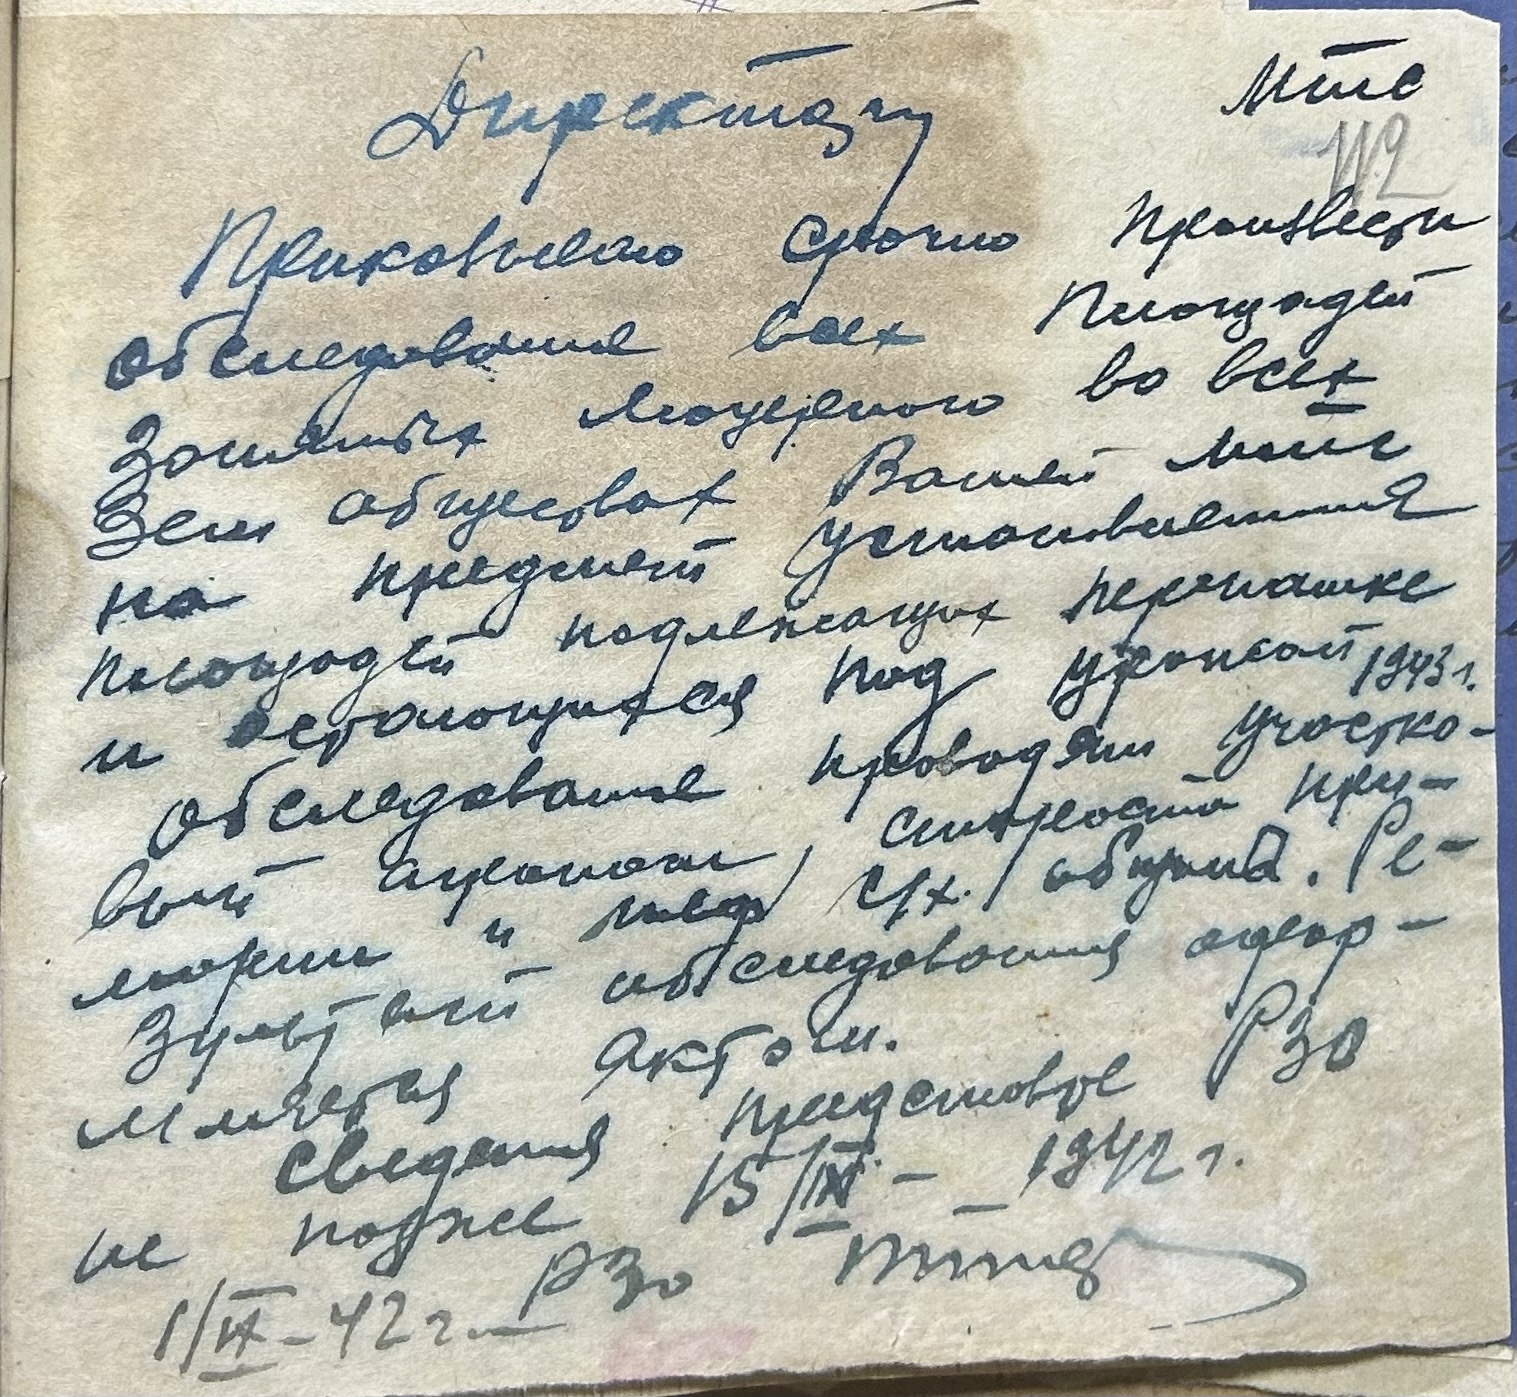 Директору МТС
112
Приказываю срочно произвести
обследование всех площадей
занятых люцерною во всех
зем обществах Вашей МТС
на предмет установления
площадей подлежащих перепашке
и остающихся под урожай 1943 г.
Обследование проводят участко-
вый агроном, староста при-
и с/х. общины. Ре-
зультат обследования офор-
мляется актом.
Сведения представте РЗО
не позже 15/IX - 1942 г.
1/IX - 42 г. РЗО